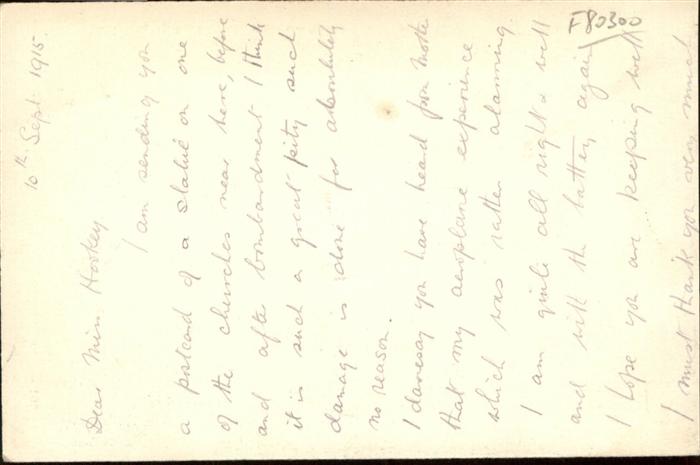 10th Sept. 1915.
Dear Miss Hockey
I am sending you
a postcard of a statue on one
of the churches near here, before
and after bombardment I think
it is such a great pity such
damage is done for absolutely
no reason.
I daresay you have heard from Mother
that my aeroplane experience
which was rather alarming.
I am quite all right & well
and with the battery again
I hope you are keeping well
I must thank you very much
F80300